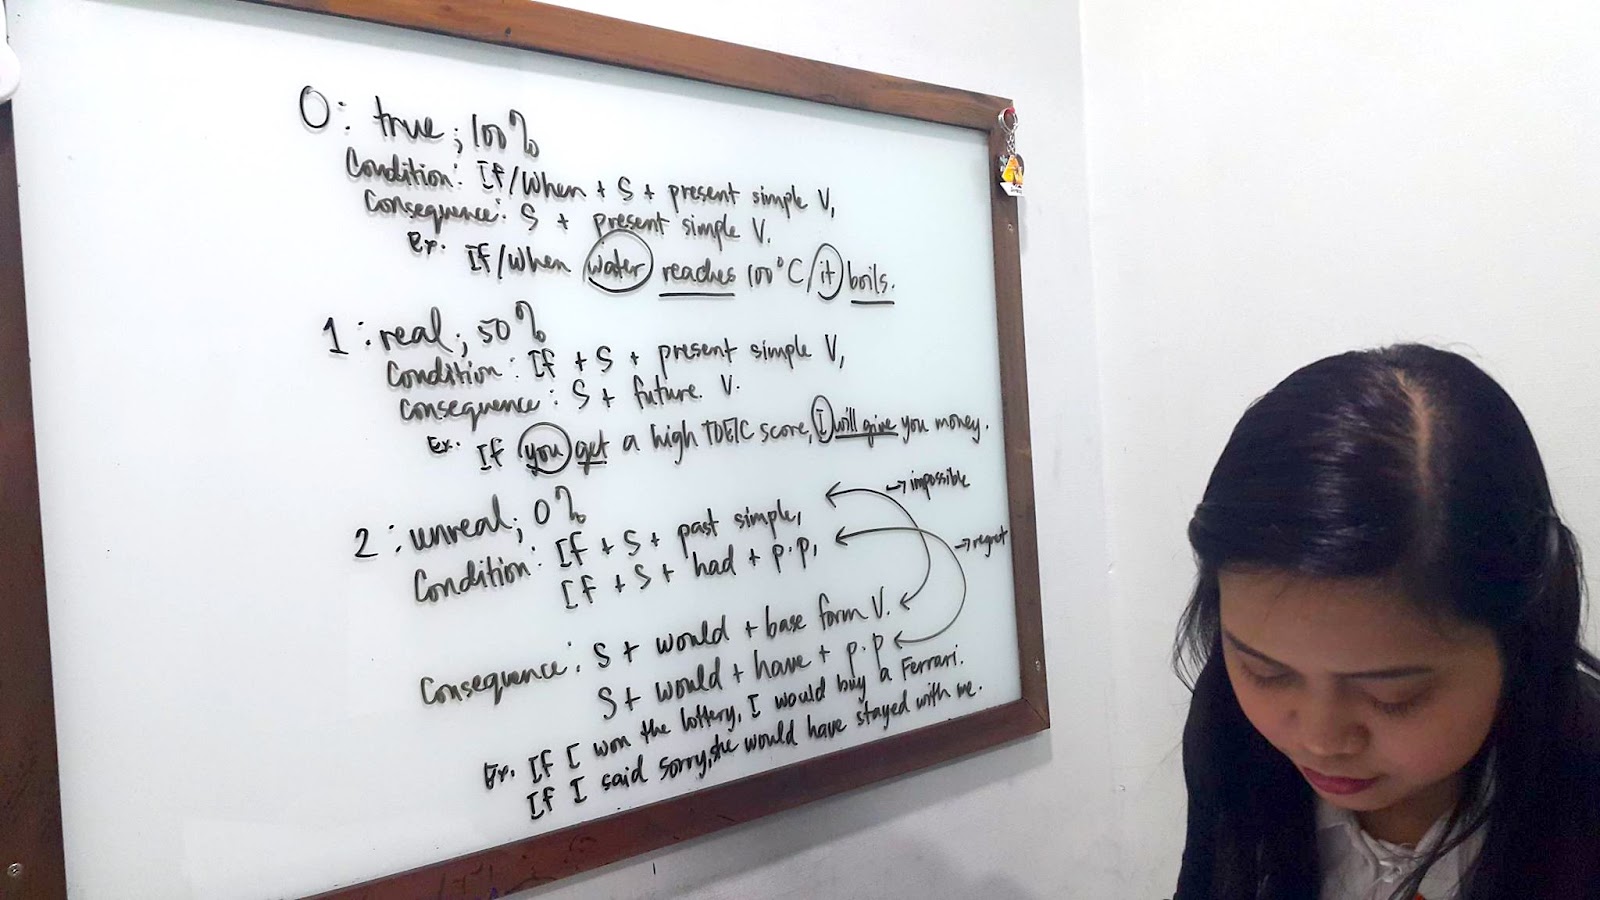 0: true; 100%
Condition: If/When + S + present simple V,
Consequence: S + present simple V.
Ex. If/When water reaches 100°C/it boils.
1: real; 50%
Condition: If + S + present simple V,
Consequence: S + future V.
Ex. If you get a high TOEIC score, I will give you money.
2: unreal; 0%
→ impossible
Condition: If + S + past simple,
→ regret
If + S + had + p.p,
Consequence: S + would + base form V.
S + would + have + p.p
Ex. If I won the lottery, I would buy a Ferrari.
If I said sorry, she would have stayed with me.